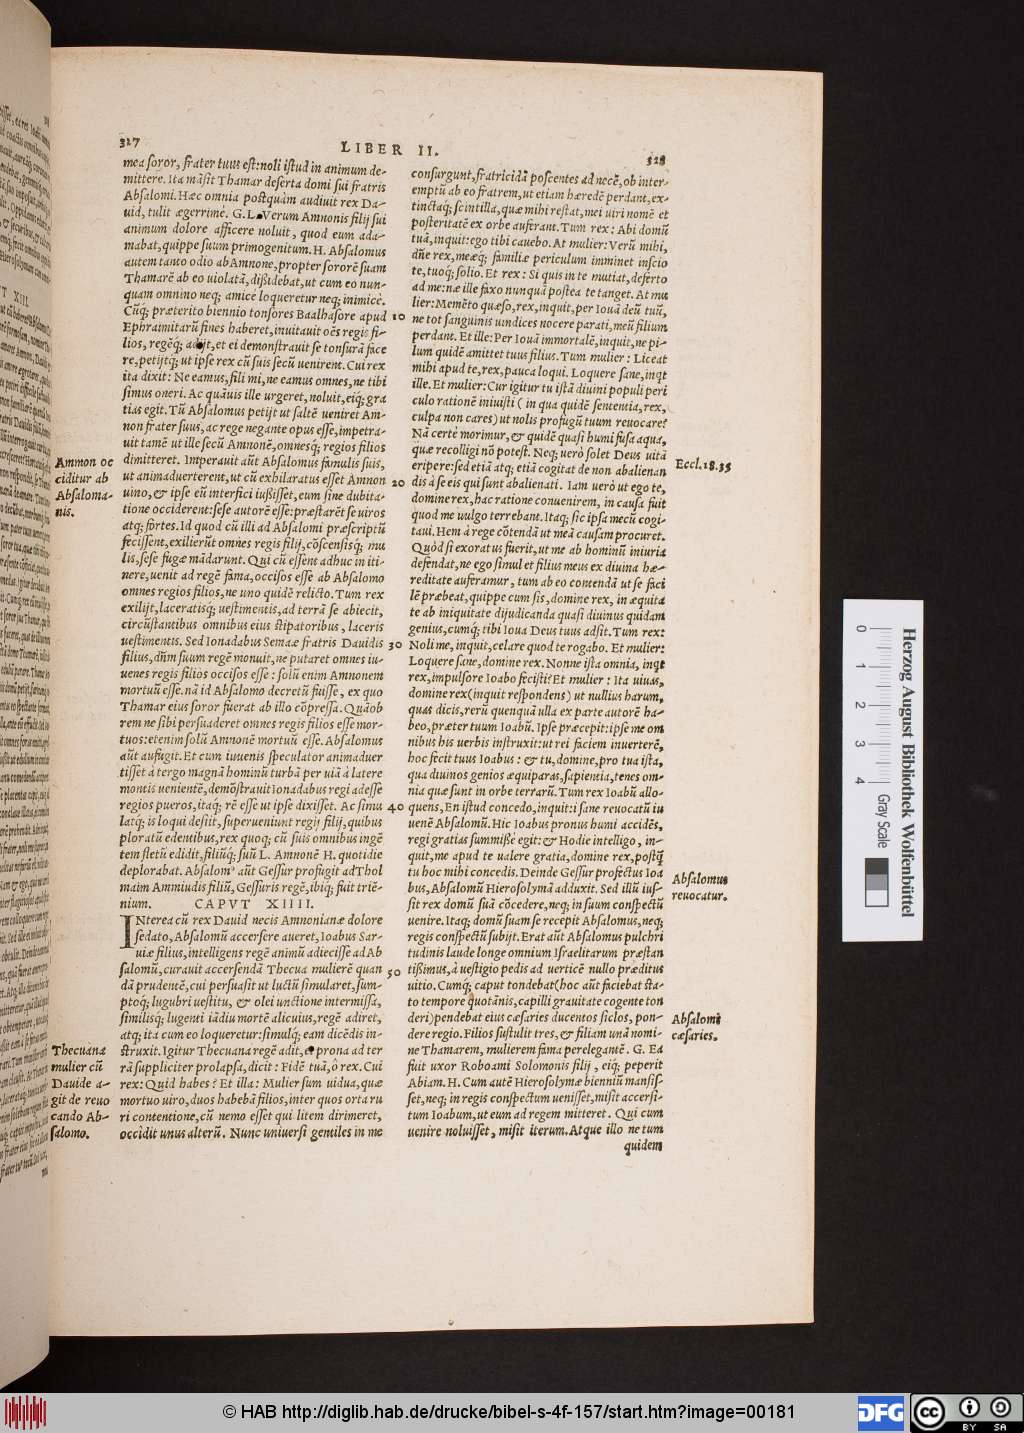 327
LIBER II.
328
mea soror, frater tuus est: noli istud in animum de-
mittere. Ita mãsit Thamar deserta domi sui fratris
Absalomi. Hæc omnia postquàm audiuit rex Da-
uid, tulit ægerrimè. G. L. Verum Amnonis filij sui
animum dolore afficere noluit, quod eum ada-
mabat, quippe suum primogenitum. H. Absalomus
autem tanto odio ab Amnone, propter sororẽ suam
Thamarẽ ab eo uiolatã, dißidebat, ut cum eo nun-
quam omnino neq; amicè loqueretur neq; inimicè.
Cũq; præterito biennio tonsores Baalhasore apud
Ephraimitarũ fines haberet, inuitauit oẽs regis fi-
lios, regẽq; adijt, et ei demonstrauit se tonsurã face
re, petijtq; ut ipse rex cũ suis secũ uenirent. Cui rex
ita dixit: Ne eamus, fili mi, ne eamus omnes, ne tibi
simus oneri. Ac quãuis ille urgeret, noluit, eiq; gra
tias egit. Tũ Absalomus petijt ut saltẽ ueniret Am-
non frater suus, ac rege negante opus esse, impetra-
uit tamẽ ut ille secũ Amnonẽ, omnesq; regios filios
dimitteret. Imperauit aũt Absalomus famulis suis,
ut animaduerterent, ut cũ exhilaratus esset Amnon
uino, & ipse eũ interfici iußisset, eum sine dubita-
tione occiderent: sese autorẽ esse: præstarẽt se uiros
atq; fortes. Id quod cũ illi ad Absalomi præscriptũ
fecissent, exilierũt omnes regis filij, cõscensisq; mu
lis, sese fugæ mãdarunt. Qui cũ essent adhuc in iti-
nere, uenit ad regẽ fama, occisos esse ab Absalomo
omnes regios filios, ne uno quidẽ relicto. Tum rex
exilijt, laceratisq; uestimentis, ad terrã se abiecit,
circũstantibus omnibus eius stipatoribus, laceris
uestimentis. Sed Ionadabus Semaæ fratris Dauidis
filius, dñm suum regẽ monuit, ne putaret omnes iu-
uenes regis filios occisos esse: solũ enim Amnonem
mortuũ esse. nã id Absalomo decretũ fuisse, ex quo
Thamar eius soror fuerat ab illo cõpressa. Quãob
rem ne sibi persuaderet omnes regis filios esse mor-
tuos: etenim solũ Amnonẽ mortuũ esse. Absalomus
aũt aufugit. Et cum iuuenis speculator animaduer
tisset à tergo magnã hominũ turbã per uiã à latere
montis uenientẽ, demõstrauit Ionadabus regi adesse
regios pueros, itaq; rẽ esse ut ipse dixisset. Ac simu
latq; is loqui desijt, superueniunt regij filij, quibus
ploratũ edentibus, rex quoq; cũ suis omnibus ingẽ
tem fletũ edidit, filiũq; suũ L. Amnonẽ H. quotidie
deplorabat. Absalomꝰ aũt Gessur profugit ad Thol
maim Ammiudis filiũ, Gessuris regẽ, ibiq; fuit triẽ-
nium. CAPVT XIIII.
INterea cũ rex Dauid necis Amnonianæ dolore
sedato, Absalomũ accersere aueret, Ioabus Sar-
uiæ filius, intelligens regẽ animũ adiecisse ad Ab
salomũ, curauit accersendã Thecua mulierẽ quan
dã prudentẽ, cui persuasit ut luctũ simularet, sum-
ptoq; lugubri uestitu, & olei unctione intermissa,
similisq; lugenti iãdiu mortẽ alicuius, regẽ adiret,
atq; ita cum eo loqueretur: simulq; eam dicẽdis in-
struxit. Igitur Thecuana regẽ adit, et prona ad ter
rã suppliciter prolapsa, dicit: Fidẽ tuã, ô rex. Cui
rex: Quid habes? Et illa: Mulier sum uidua, quæ
mortuo uiro, duos habebã filios, inter quos orta ru
ri contentione, cũ nemo esset qui litem dirimeret,
occidit unus alterũ. Nunc uniuersi gentiles in me
Ammon oc
ciditur ab
Absaloma-
nis.
Thecuana
mulier cũ
Dauide a-
git de reuo
cando Ab-
salomo.
10
20
30
40
50
consurgunt, fratricidã poscentes ad necẽ, ob inter-
emptũ ab eo fratrem, ut etiam hæredẽ perdant, ex-
tinctaq; scintilla, quæ mihi restat, mei uiri nomẽ et
posteritatẽ ex orbe auferant. Tum rex: Abi domũ
tuã, inquit: ego tibi cauebo. At mulier: Verũ mihi,
dñe rex, meæq; familiæ periculum imminet inscio
te, tuoq; solio. Et rex: Si quis in te mutiat, deferto
ad me: næ ille faxo nunquã postea te tanget. At mu
lier: Memẽto quæso, rex, inquit, per Iouã deũ tuũ,
ne tot sanguinis uindices nocere parati, meũ filium
perdant. Et ille: Per Iouã immortalẽ, inquit, ne pi-
lum quidẽ amittet tuus filius. Tum mulier: Liceat
mihi apud te, rex, pauca loqui. Loquere sanè, inqt
ille. Et mulier: Cur igitur tu istã diuini populi peri
culo rationẽ iniuisti (in qua quidẽ sententia, rex,
culpa non cares) ut nolis profugũ tuum reuocare?
Nã certè morimur, & quidẽ quasi humi fusa aqua,
quæ recolligi nõ potest. Neq; uerò solet Deus uitã
eripere: sed etiã atq; etiã cogitat de non abalienan
dis à se eis qui sunt abalienati. Iam uerò ut ego te,
domine rex, hac ratione conuenirem, in causa fuit
quod me uulgo terrebant. Itaq; sic ipsa mecũ cogi-
taui. Hem à rege cõtendã ut meã causam procuret.
Quòd si exoratus fuerit, ut me ab hominũ iniuria
defendat, ne ego simul et filius meus ex diuina hæ-
reditate auferamur, tum ab eo contendã ut se faci
lẽ præbeat, quippe cum sis, domine rex, in æquita
te ab iniquitate dijudicanda quasi diuinus quidam
genius, cumq; tibi Ioua Deus tuus adsit. Tum rex:
Noli me, inquit, celare quod te rogabo. Et mulier:
Loquere sanè, domine rex. Nonne ista omnia, inqt
rex, impulsore Ioabo fecisti? Et mulier: Ita uiuas,
domine rex (inquit respondens) ut nullius harum,
quas dicis, rerũ quenquã ulla ex parte autorẽ ha-
beo, præter tuum Ioabũ. Ipse præcepit: ipse me om
nibus his uerbis instruxit: ut rei faciem inuerterẽ,
hoc fecit tuus Ioabus: & tu, domine, pro tua ista,
qua diuinos genios æquiparas, sapientia, tenes om-
nia quæ sunt in orbe terrarũ. Tum rex Ioabũ allo-
quens, En istud concedo, inquit: i sanè reuocatũ iu
uenẽ Absalomũ. Hic Ioabus pronus humi accidẽs,
regi gratias summißè egit: & Hodie intelligo, in-
quit, me apud te ualere gratia, domine rex, postq̃
tu hoc mihi concedis. Deinde Gessur profectus Ioa
bus, Absalomũ Hierosolymã adduxit. Sed illũ ius-
sit rex domũ suã cõcedere, neq; in suum conspectũ
uenire. Itaq; domũ suam se recepit Absalomus, neq;
regis conspectũ subijt. Erat aũt Absalomus pulchri
tudinis laude longe omnium Israelitarum præstan
tißimus, à uestigio pedis ad uerticẽ nullo præditus
uitio. Cumq; caput tondebat (hoc aũt faciebat sta-
to tempore quotãnis, capilli grauitate cogente ton
deri) pendebat eius cæsaries ducentos siclos, pon-
dere regio. Filios sustulit tres, & filiam unã nomi-
ne Thamarem, mulierem fama perelegantẽ. G. Ea
fuit uxor Roboami Solomonis filij, eiq; peperit
Abiam. H. Cum autẽ Hierosolymæ bienniũ mansis-
set, neq; in regis conspectum uenisset, misit accersi-
tum Ioabum, ut eum ad regem mitteret. Qui cum
uenire noluisset, misit iterum. Atque illo ne tum
quidem
Eccl. 18. 35
Absalomus
reuocatur.
Absalomi
cæsaries.
0 1 2 3 4
Herzog August Bibliothek Wolfenbüttel
Gray Scale
© HAB http://diglib.hab.de/drucke/bibel-s-4f-157/start.htm?image=00181
DFG
cc
BY SA